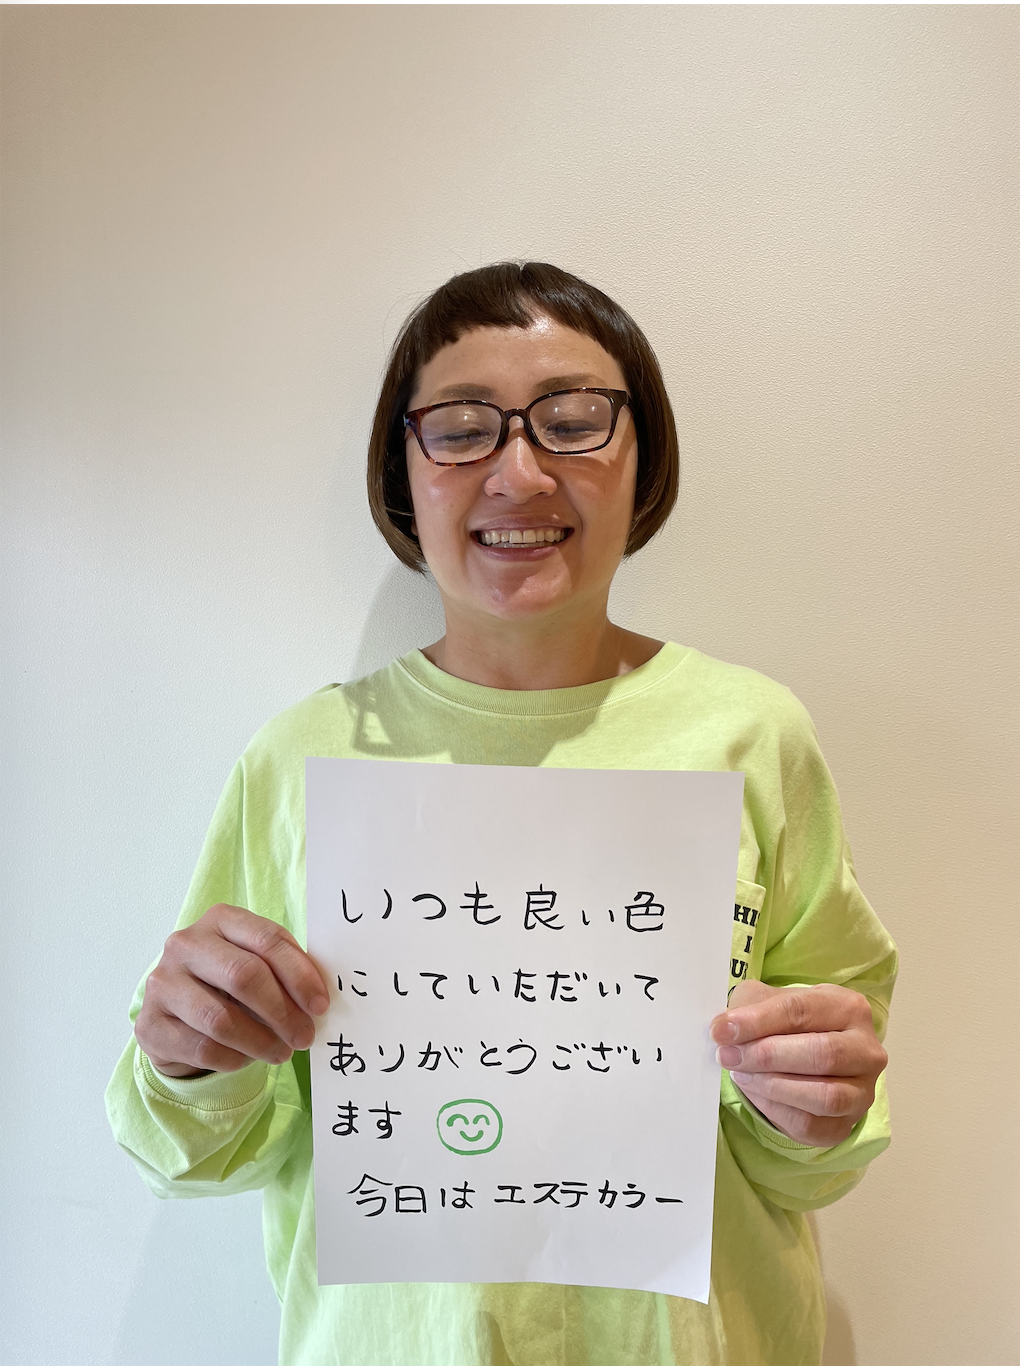 いつも良い色
にしていただいて
ありがとうござい
ます
今日はエステカラー